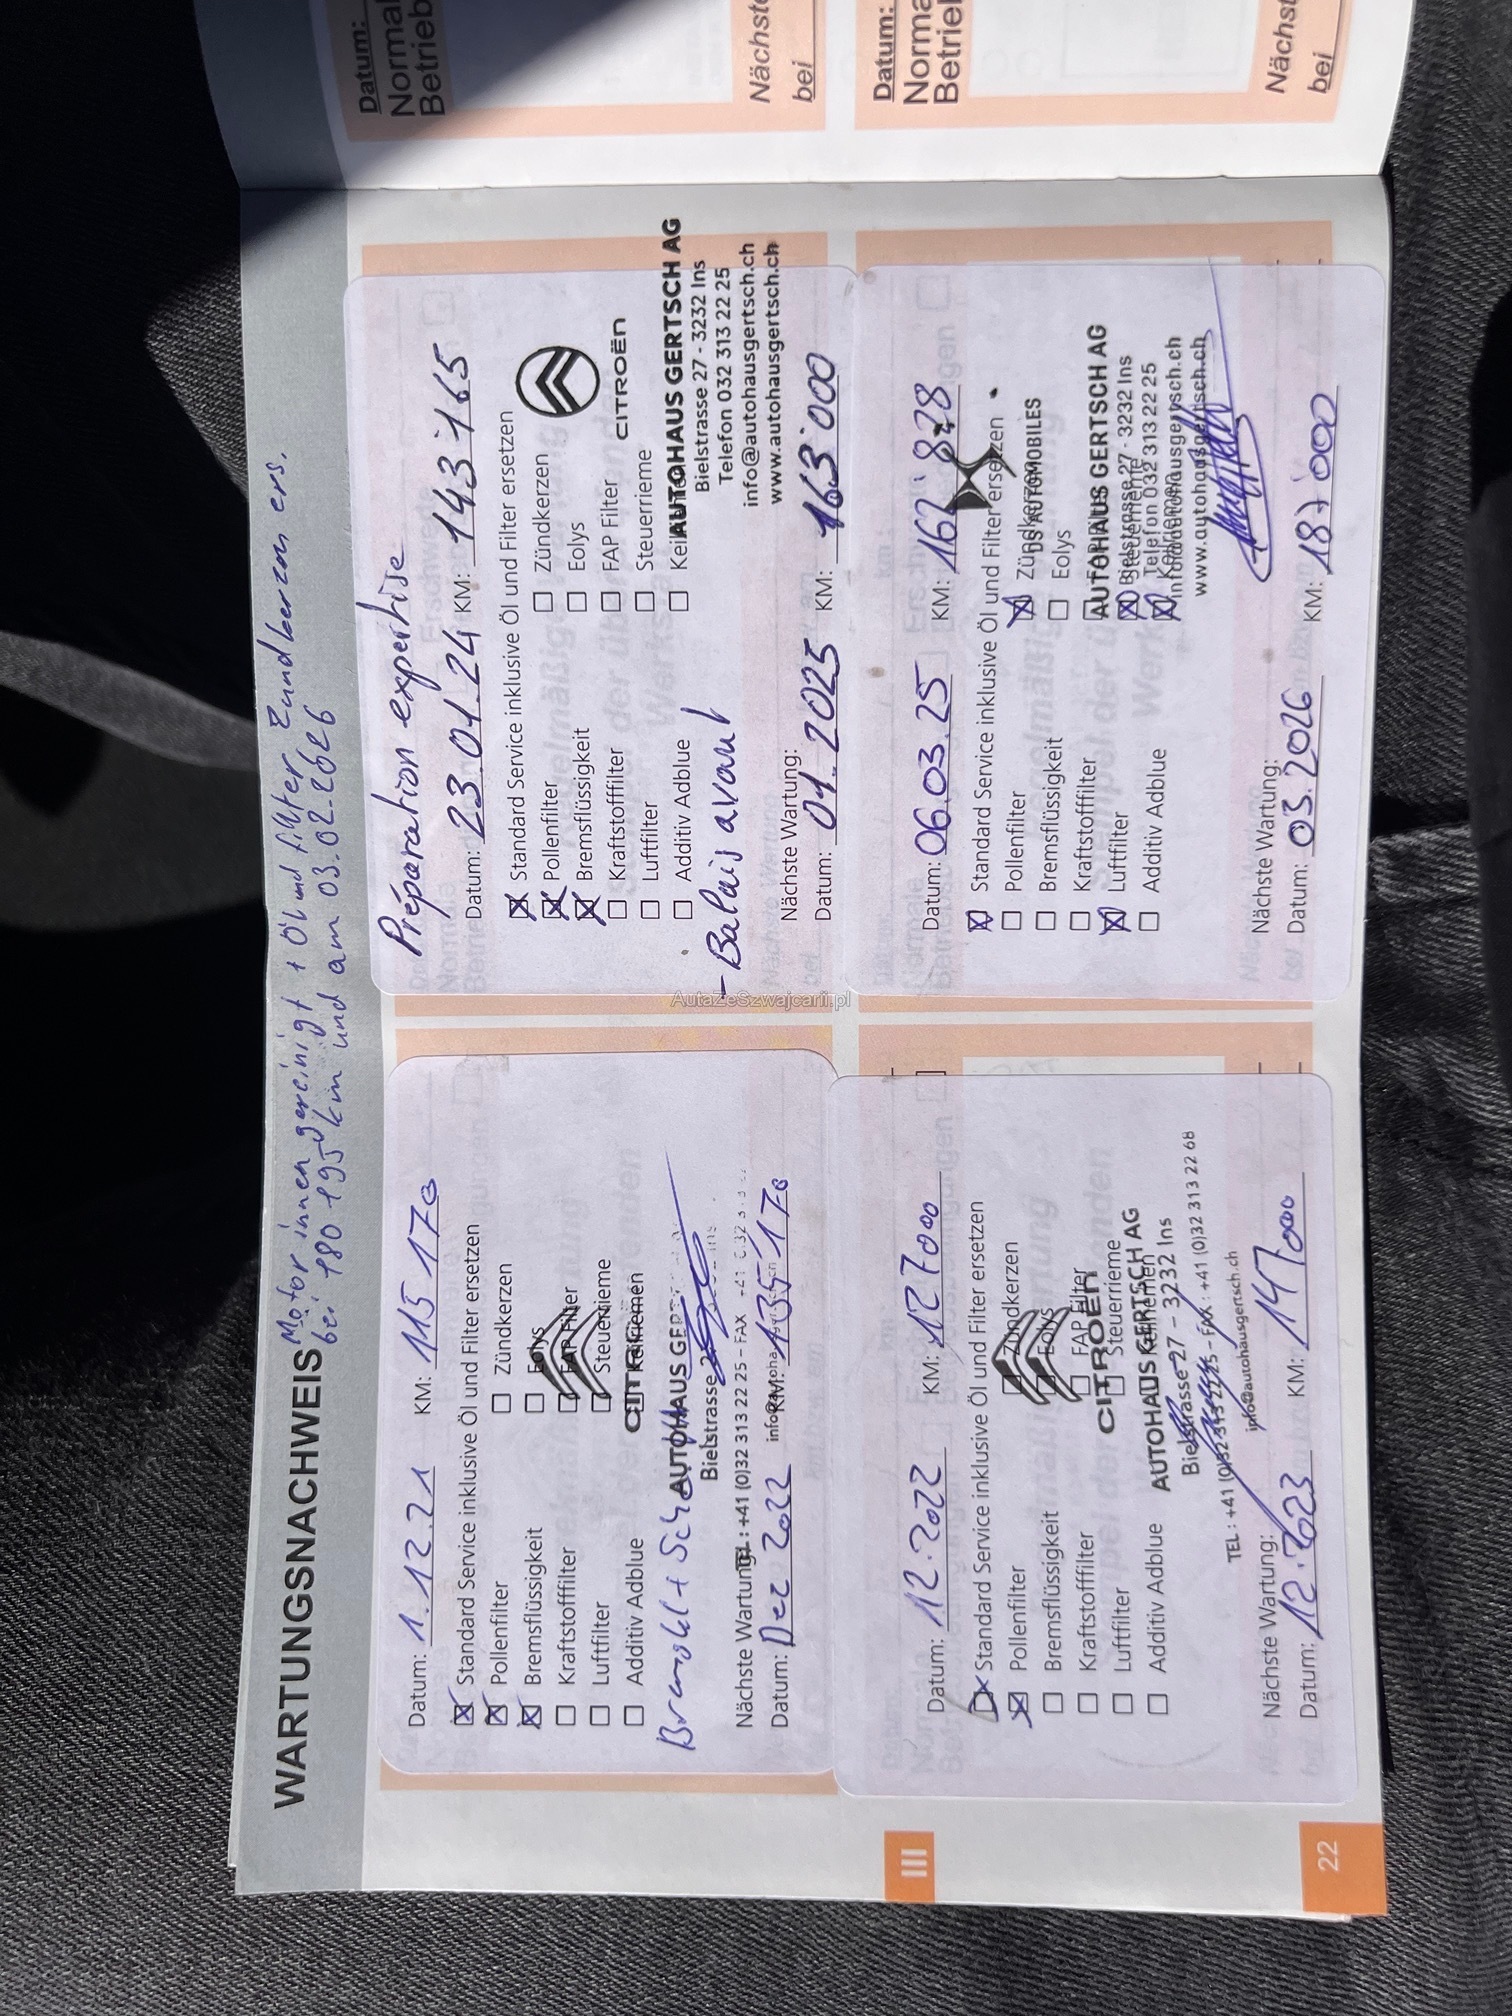 WARTUNGSNACHWEIS
Motor innen gereinigt + Öl und Filter, Zündkerzen ers.
bei 180 195 km und am 03.02.2026
Datum: 1.12.21 KM: 115 170
Standard Service inklusive Öl und Filter ersetzen
Pollenfilter Zündkerzen
Bremsflüssigkeit Eolys
Kraftstofffilter FAP Filter
Luftfilter Steuerrieme
Additiv Adblue Keilriemen
CITROËN
AUTOHAUS
Bielstrasse
TEL : +41 (0)32 313 22 25 – FAX
Nächste Wartung:
Datum: Dez 2022 KM: 135'170
Préparation expertise
Datum: 23.01.24 KM: 143'165
Standard Service inklusive Öl und Filter ersetzen
Pollenfilter Zündkerzen
Bremsflüssigkeit Eolys
Kraftstofffilter FAP Filter
Luftfilter Steuerrieme
Additiv Adblue
CITROËN
AUTOHAUS GERTSCH AG
Bielstrasse 27 - 3232 Ins
Telefon 032 313 22 25
info@autohausgertsch.ch
www.autohausgertsch.ch
- Balais avant
Nächste Wartung:
Datum: 01.2025 KM: 163'000
AutaZeSzwajcarii.pl
Datum: 12.2022 KM: 127000
Standard Service inklusive Öl und Filter ersetzen
Pollenfilter Zündkerzen
Bremsflüssigkeit Eolys
Kraftstofffilter FAP Filter
Luftfilter Steuerrieme
Additiv Adblue Keilriemen
CITROËN
AUTOHAUS GERTSCH AG
Bielstrasse 27 – 3232 Ins
TEL : +41 (0)32 313 22 25 – FAX : +41 (0)32 313 22 68
info@autohausgertsch.ch
Nächste Wartung:
Datum: 12.2023 KM: 147000
Datum: 06.03.25 KM: 162'828
Standard Service inklusive Öl und Filter ersetzen
Pollenfilter Zündkerzen
Bremsflüssigkeit Eolys
Kraftstofffilter
Luftfilter Steuerrieme
Additiv Adblue Keilriemen
DS AUTOMOBILES
AUTOHAUS GERTSCH AG
Bielstrasse 27 - 3232 Ins
Telefon 032 313 22 25
info@autohausgertsch.ch
www.autohausgertsch.ch
Nächste Wartung:
Datum: 03.2026 KM: 187'000
III
22
Datum:
Betrieb
bei
Datum:
bei